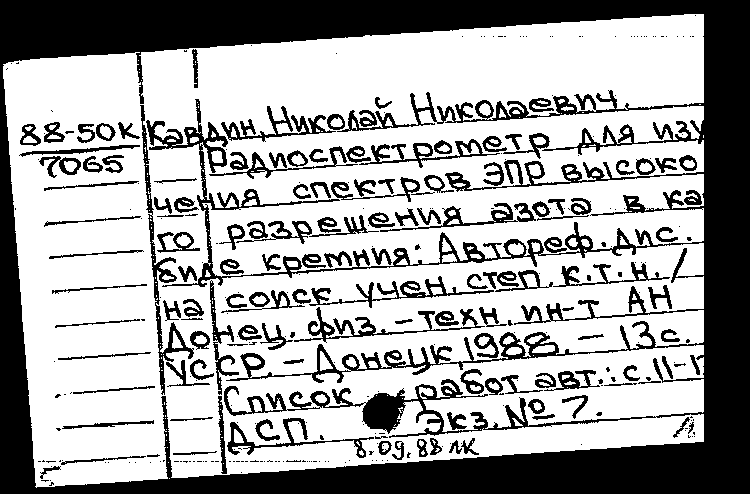 88-50К
7065
Кавдин, Николай Николаевич.
Радиоспектрометр для изу
чения спектров ЭПР высоко
го разрешения азота в ка
биде кремния: Автореф. дис.
на соиск. учен. степ. к.т.н. /
Донец. физ. - техн. ин-т АН
УССР. - Донецк, 1988. - 13 с.
Список работ авт.: с. 11-1
ДСП. Экз. № 7.
8.09.88 лк